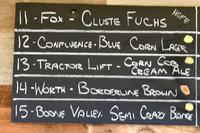 11 - FOX - CLUSTE FUCHS HOPE
12 - CONFLUENCE - BLUE CORN LAGER
13 - TRACTOR LIFT - CORN COB
CREAM ALE
14 - WORTH - BORDERLINE BROWN
15 - BOONE VALLEY SEMI CRAZY BLONDE